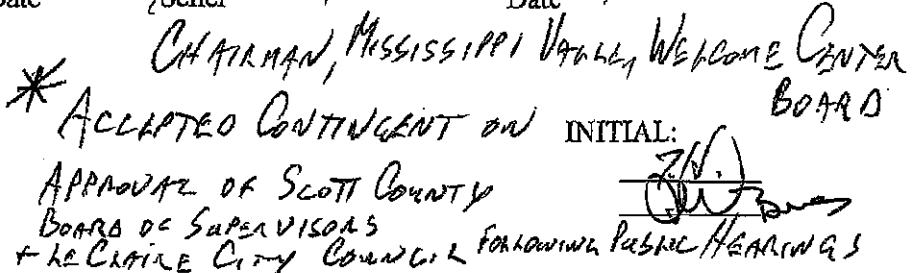 Date Seller Date
CHAIRMAN, MISSISSIPPI VALLEY WELCOME CENTER
BOARD
* ACCEPTED CONTINGENT ON INITIAL:
APPROVAL OF SCOTT COUNTY
BOARD OF SUPERVISORS
+ LE CLAIRE CITY COUNCIL FOLLOWING PUBLIC HEARINGS